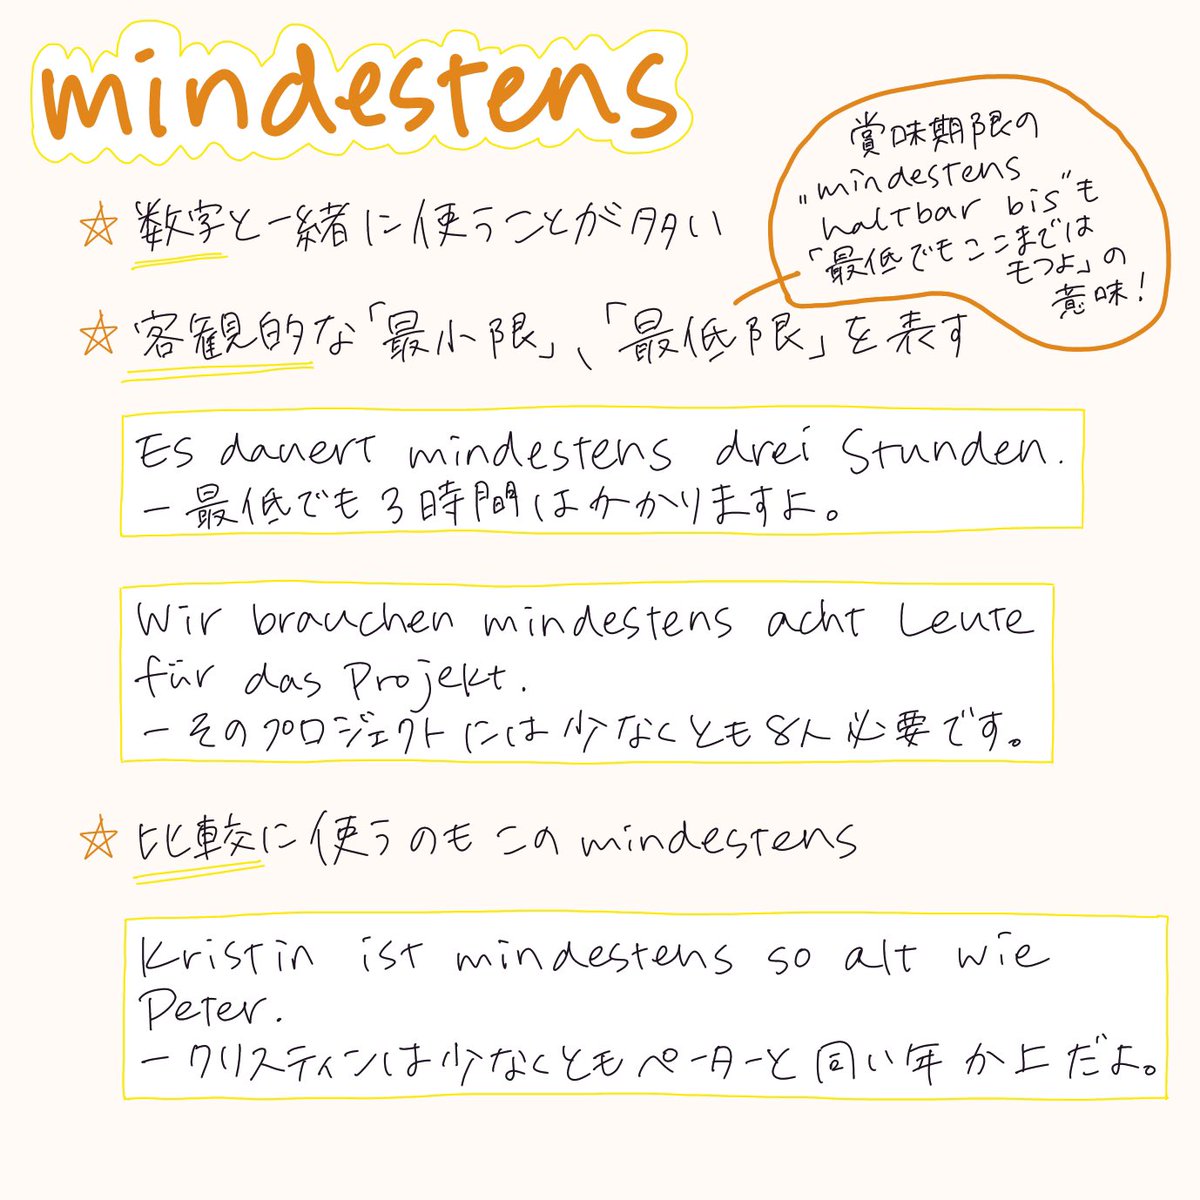 mindestens
☆ 数字と一緒に使うことが多い
賞味期限の
"mindestens
haltbar bis"も
「最低でもここまでは
もつよ」の
意味!
☆ 客観的な「最小限」、「最低限」を表す
Es dauert mindestens drei Stunden.
- 最低でも3時間はかかりますよ。
Wir brauchen mindestens acht Leute
für das Projekt.
- そのプロジェクトには少なくとも8人必要です。
☆ 比較に使うのもこのmindestens
Kristin ist mindestens so alt wie
Peter.
- クリスティンは少なくともペーターと同い年か上だよ。